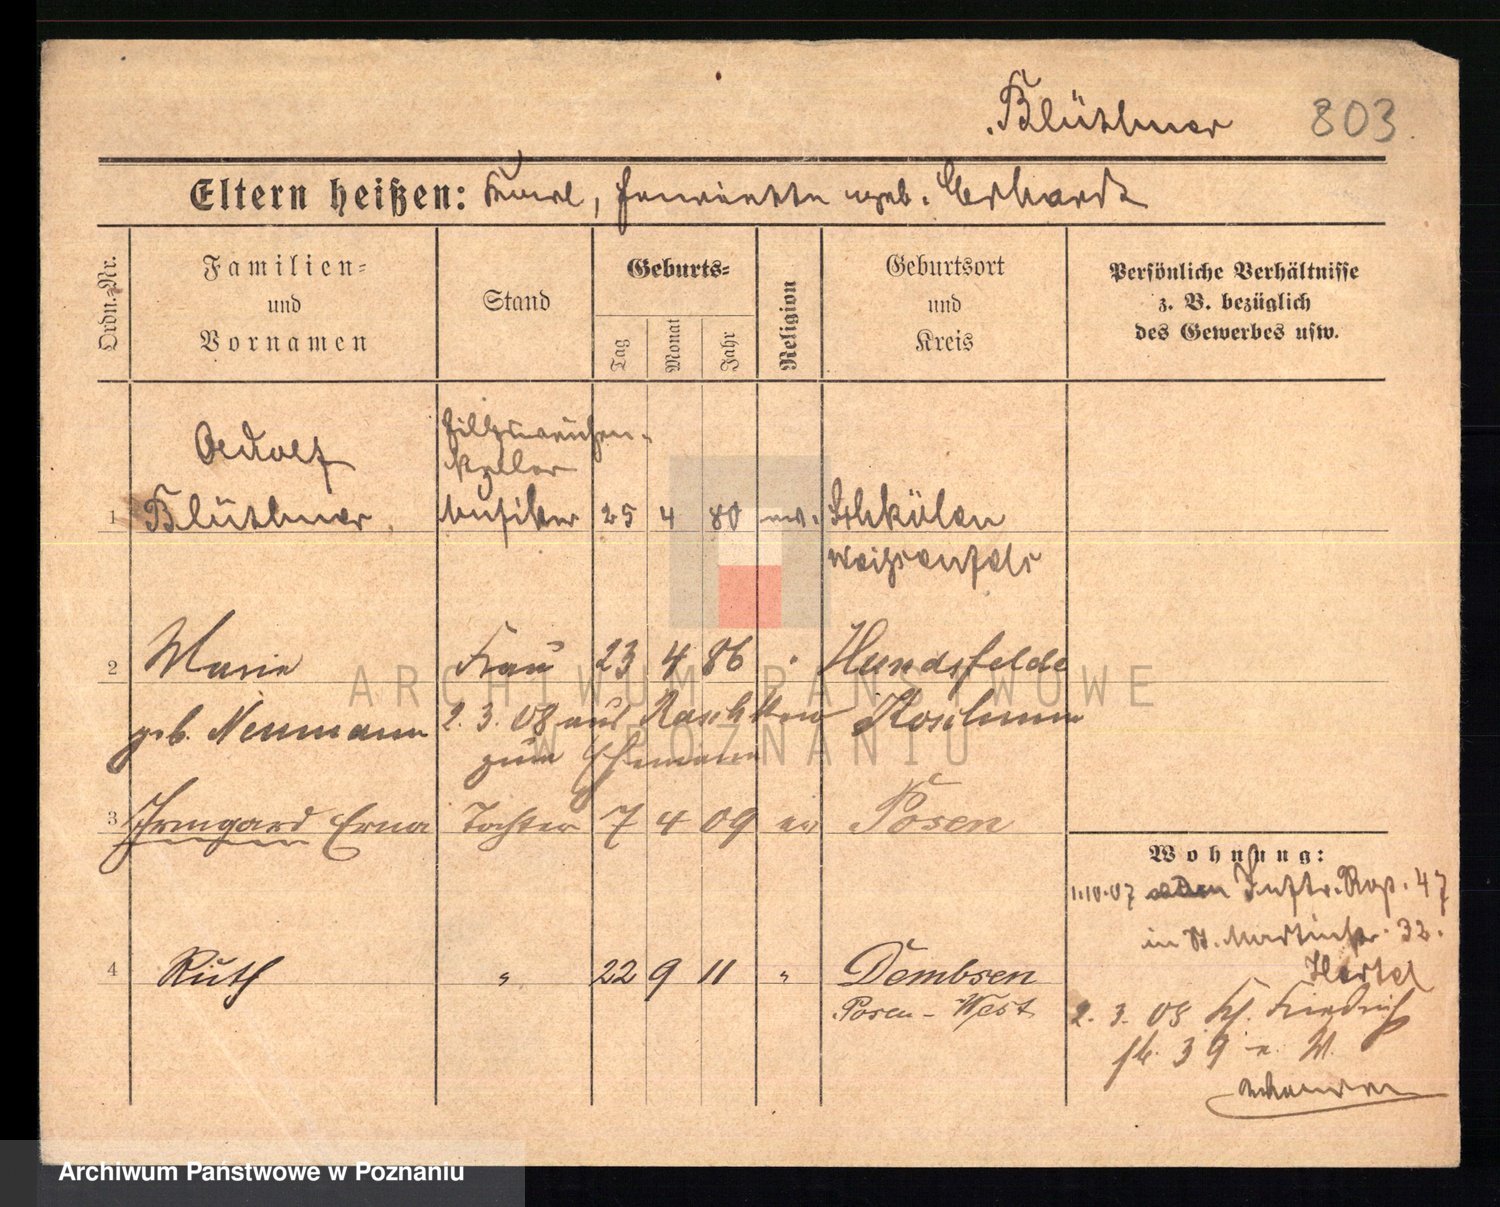 Blüthner 803
Eltern heißen: Karl, Henriette geb. Gerhardt
Ordn.-Nr.
Familien-
und
Vornamen
Stand
Geburts-
Tag
Monat
Jahr
Religion
Geburtsort
und
Kreis
Persönliche Verhältnisse
z. B. bezüglich
des Gewerbes usw.
Adolf
Hilfsweichen-
steller
1 Blüthner, Musiker 25 4 80 ev. Schkölen
Weißenfels
2 Marie Frau 23 4 86 " Hundsfelde
geb. Neumann 2.3.08 aus Raschkow Koschmin
zum Ehemann
3 Irmgard Erna Tochter 7 4 09 ev Posen
Wohnung:
1.10.07 Inftr. Rgt. 47
in St. Martinstr. 32.
Hertel
4 Ruth " 22 9 11 " Dembsen
Posen-West
2.3.08 Kl. Friedrich
str. 39 b. W.
ARCHIWUM PAŃSTWOWE
W POZNANIU
Archiwum Państwowe w Poznaniu